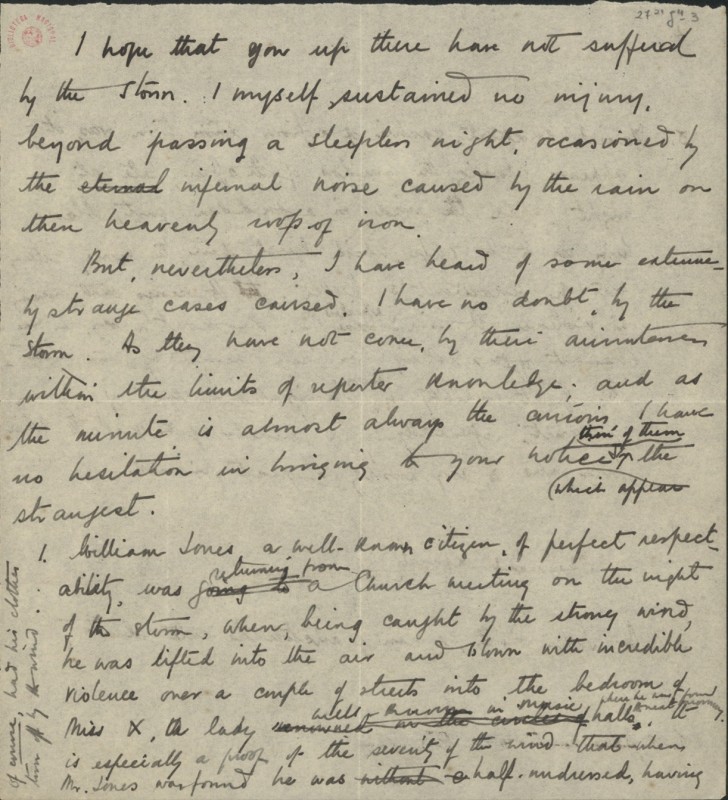 27 21 g4 3
I hope that you up there have not suffered
by the storm. I myself sustained no injury,
beyond passing a sleepless night, occasioned by
the eternal infernal noise caused by the rain on
then heavenly roofs of iron.
But, nevertheless, I have heard of some extreme-
ly strange cases caused, I have no doubt, by the
storm. As they have not come, by their minuteness
within the limits of reporter knowledge; and as
the minute is almost always the curious, I have
their of them
no hesitation in bringing to your notice the
which appear
strangest.
1. William Jones, a well-known citizen, of perfect respect-
returning from
ability, was going to a Church meeting on the night
of the storm, when, being caught by the strong wind,
he was lifted into the air and blown with incredible
violence over a couple of streets into the bedroom of
where he was found next morning.
well known in music
Miss X, the lady renowned in the circles of halls. It
is especially a proof of the severity of the wind that when
Mr. Jones was found he was without half-undressed, having
of course, had his clothes
torn off by the wind.